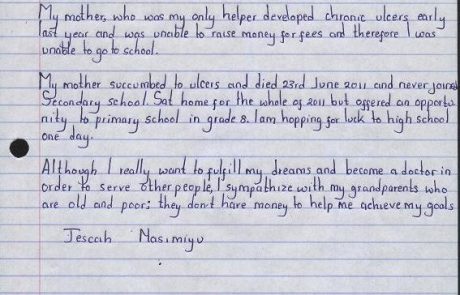 My mother, who was my only helper developed chronic ulcers early
last year and was unable to raise money for fees and therefore I was
unable to go to school.
My mother succumbed to ulcers and died 23rd June 2011 and never joined
Secondary school. Sat home for the whole of 2011 but offered an opportu-
nity to primary school in grade 8. I am hopping for luck to high school
one day.
Although I really want to fulfill my dreams and become a doctor in
order to serve other people, I sympathize with my grandparents who
are old and poor; they don't have money to help me achieve my goals
Jescah Nasimiyu